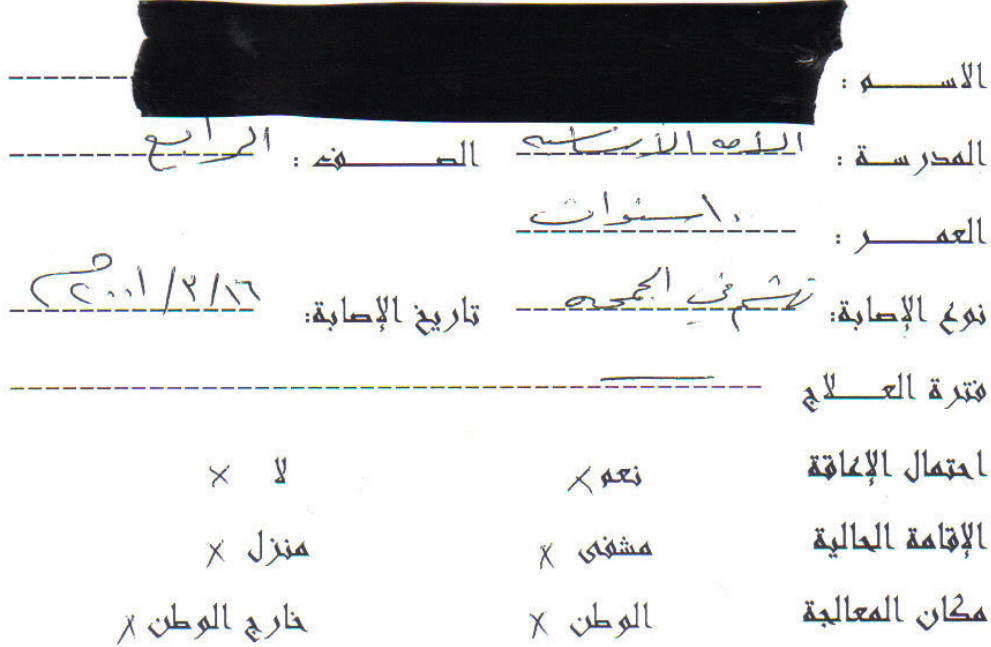 الاسم :
المدرسة : الأمه الأساسيه الصف : الرابع
العمر : ١٠ سنوات
نوع الإصابة: تهشم في الجمجمه تاريخ الإصابة: ١٦/٣/٢٠٠١م
فترة العلاج —
احتمال الإعاقة نعم x لا x
الإقامة الحالية مشفى x منزل x
مكان المعالجة الوطن x خارج الوطن x